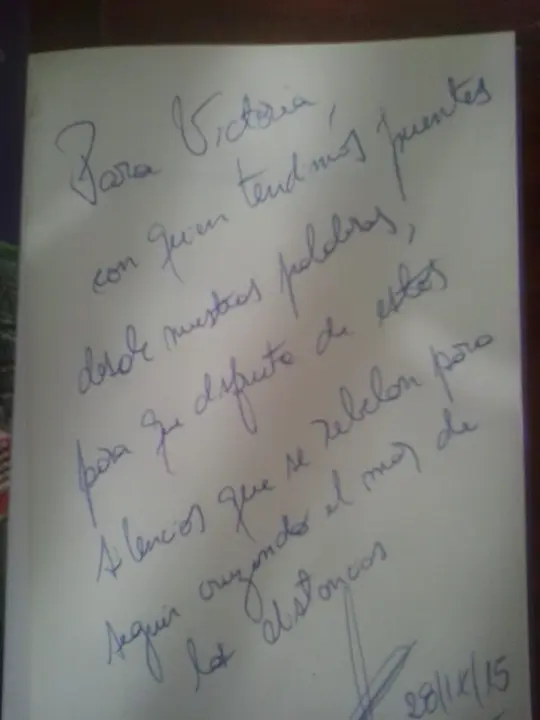 Para Victoria,
con quien tendimos puentes
desde nuestras palabras,
para que disfrute de estos
silencios que se rebelan para
seguir cruzando el mar de
las distancias
28/IX/15